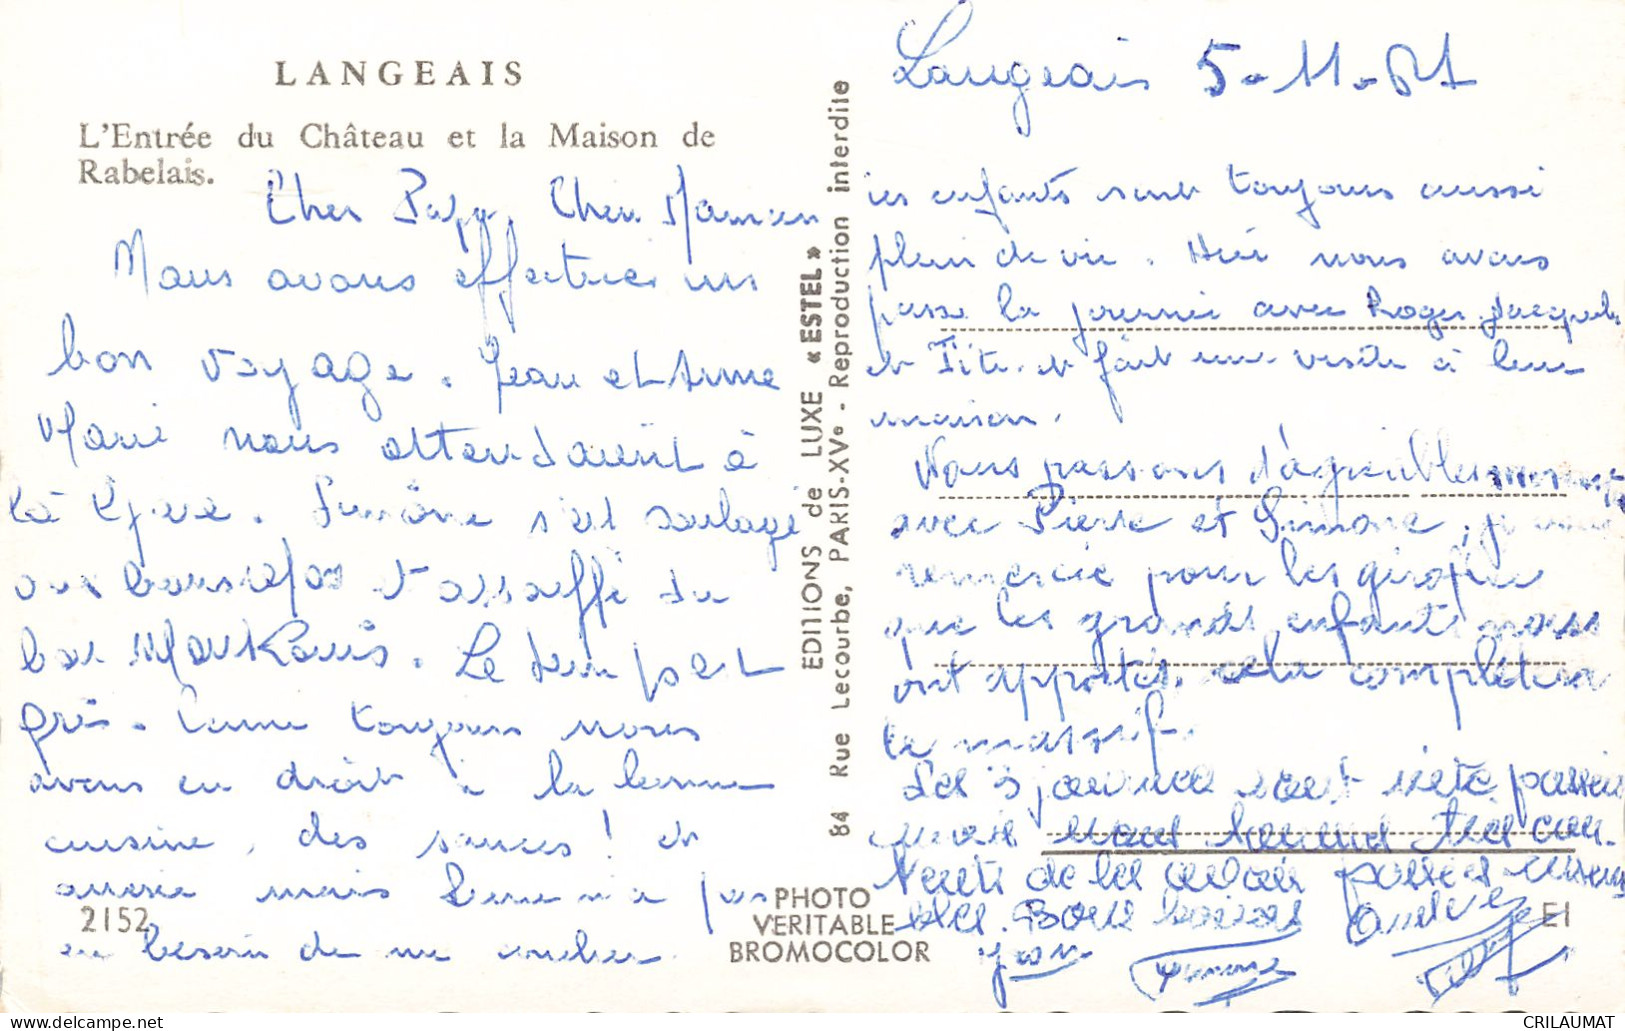 LANGEAIS
L'Entrée du Château et la Maison de
Rabelais.
Cher Papa, Chère Maman
Nous avons effectué un
bon voyage. Jean et Anne
Marie nous attendaient à
la gare. Simone s'est soulagé
du
bar Le temps est
gris. toujours nous
avons eu droit à la bonne
cuisine, des sauces! et
mais Simone n'a pas
eu besoin de me
2152
PHOTO
VERITABLE
BROMOCOLOR
EDITIONS de LUXE « ESTEL »
84 Rue Lecourbe, PARIS-XVe - Reproduction interdite
Langeais 5-11-61
les enfants sont toujours aussi
plein de vie. Hier nous avons
passé la journée avec Roger, Jacqueline
et Titi et fait une visite à leur
maison.
Nous passons d'agréables moments
avec Pierre et Simone, je vous
remercie pour les giroflées
que les grands enfants nous
ont apportés, cela complétera
le massif.
Les 3 journées sont vite passées
mais nous sommes très con-
tents de les avoir passées ensem-
bles. Bons baisers
Yvon Simone
EI
CRILAUMAT